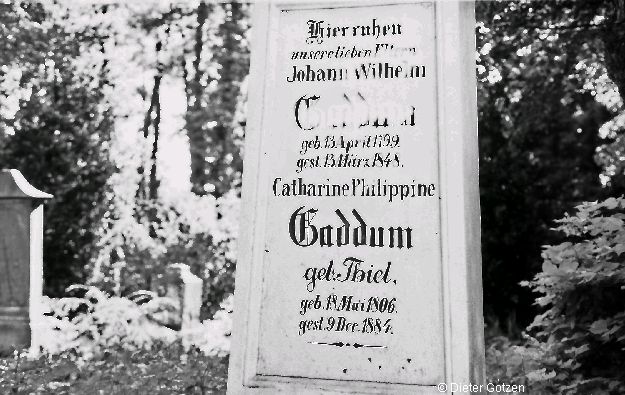 Hier ruhen
unsere lieben Eltern
Johann Wilhelm
Gaddum
geb. 13. April 1799.
gest. 13. März 1848.
Catharine Philippine
Gaddum
geb. Thiel,
geb. 18. Mai 1806.
gest. 9. Dec. 1884.
© Dieter Gotzen